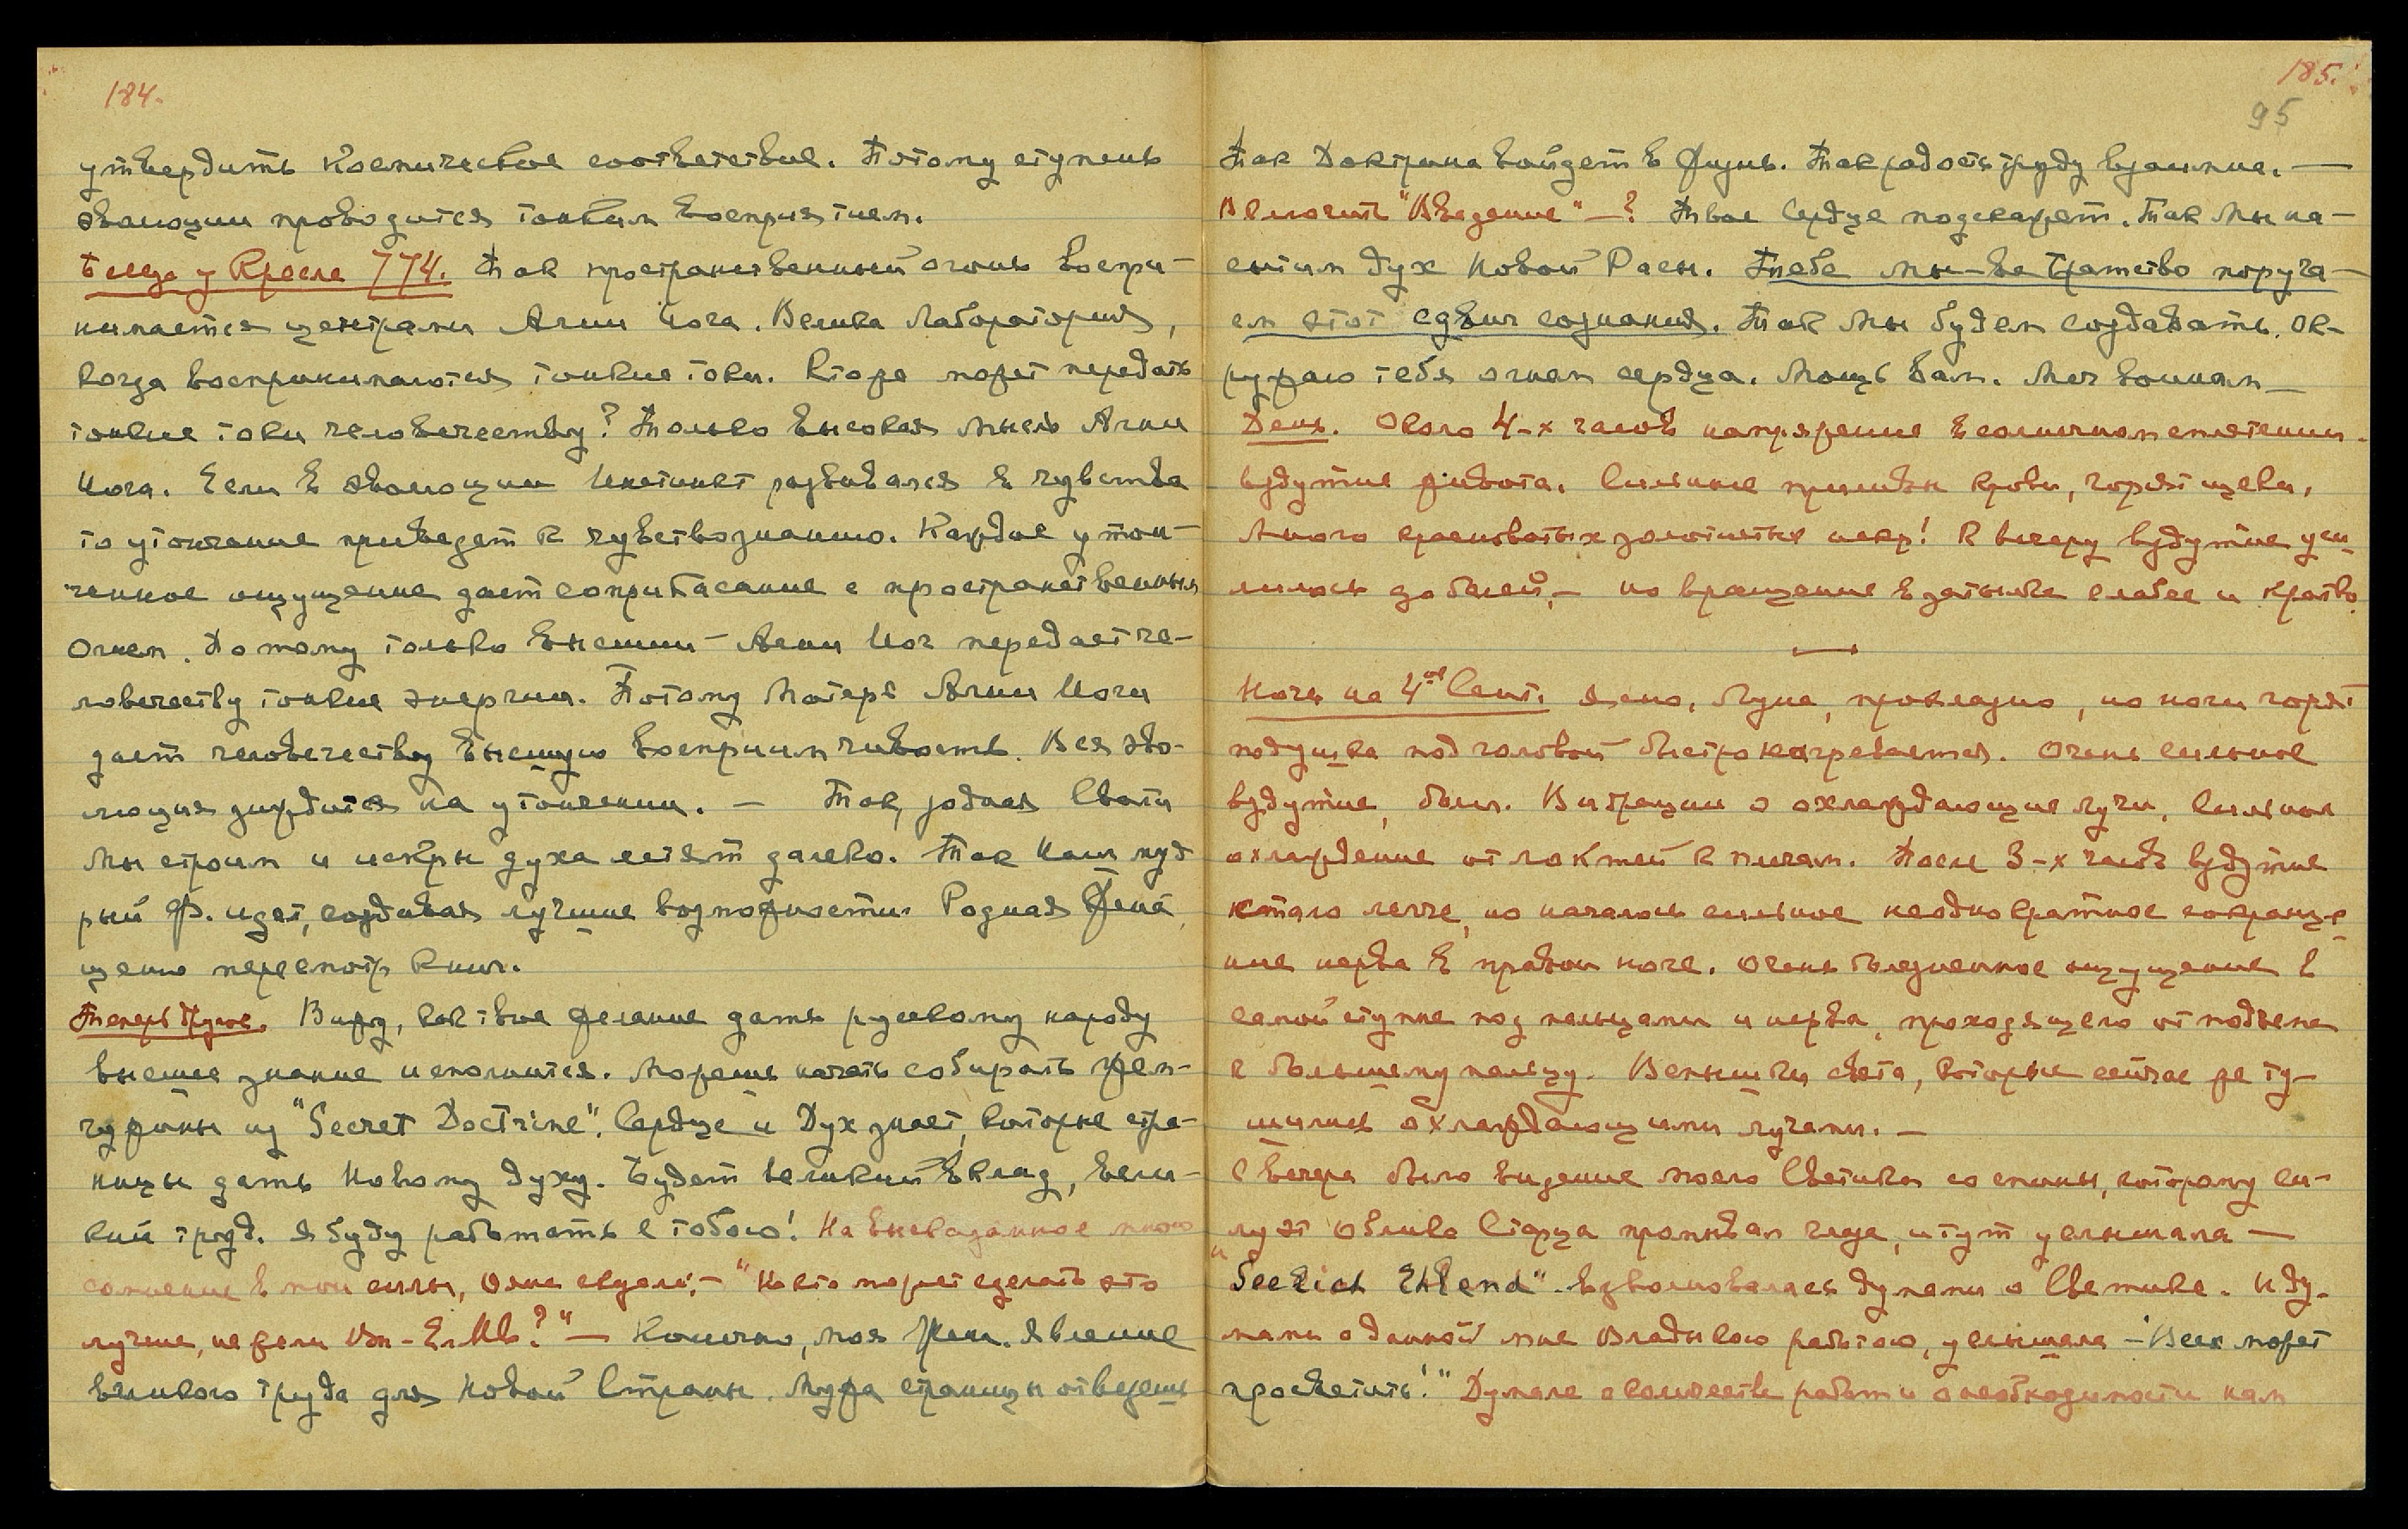 184.
утвердить Космическое соответствие. Потому ступень
эволюции проводится тонким восприятием.
Беседа у Кресла 774. Так пространственный огонь воспри-
нимается центрами Агни Йога. Велика Лаборатория,
когда воспринимаются тонкие токи. Кто же может передать
тонкие токи человечеству? Только высокая мысль Агни
Йога. Если в эволюции Инстинкт развивался в чувства
то утончание приведет к чувствознанию. Каждое утон-
ченное ощущение дает соприкасание с пространственным
Огнем. Потому только высший Агни Йог передает че-
ловечеству тонкие энергии. Потому Матерь Агни Йоги
дает человечеству высшую восприимчивость. Вся эво-
люция зиждится на утончении. — Так, родная Свати
мы строим и искры духа летят далеко. Так Наш муд
рый Ф. идет, создавая лучшие возможности. Родная Жена,
ценю пересмотр книг.
Теперь другое. Вижу, как твое желание дать русскому народу
высшее знание исполнится. Можешь начать собирать жем-
чужины из "Secret Doctrine". Сердце и Дух знает, которые стра-
ницы дать Новому Духу. Будет великий вклад, вели-
кий труд. Я буду работать с тобою! На высказанное мною
сомнение в мои силы, Они сказали: — "Но кто может сделать это
лучше, нежели — Конечно, моя Жена. Явление
великого труда для Новой Страны. Мудра страницы отведешь
185.
95
Так Доктрина войдет в жизнь. Так радость труду взаимна. —
Включить "Введение" — ? Твое Сердце подскажет. Так Мы на-
сытим дух Новой Расы. Тебе мы — все Братство поруча-
ем этот сдвиг сознания. Так Мы будем создавать. Ок-
ружаю тебя огнем сердца. Мощь вам. Меч воинам —
День. Около 4-х часов напряжение в солнечном сплетении.
вздутие живота. Сильные приливы крови, горят щеки,
Много красноватых золотистых искр! К вечеру вздутие уси
лилось до болей, — но вращение в затылке слабее и кратко.
Ночь на 4ое Сент. Ясно, Луна, прохладно, но ноги горят
подушка под головой быстро нагревается. Очень сильное
вздутие, боли. Вибрации и охлаждающие лучи. Сильное
охлаждение от локтей к плечам. После 3-х часов вздутие
стало легче, но началось сильное неоднократное сокраще
ние нерва в правой ноге. Очень болезненное ощущение в
самой ступне под пальцами и нерва, проходящего от подъема
к большому пальцу. Вспышки света, которые сейчас же ту-
шились охлаждающими лучами. —
С вечера было видение моего Светика со спины, которому
облик Старца промывал глаза, и тут услышала —
" взволновалась думами о Светике. И ду-
мами о данной мне Владыкою работою, услышала — "Всех может
просветить!" Думала о количестве работы и о необходимости нам